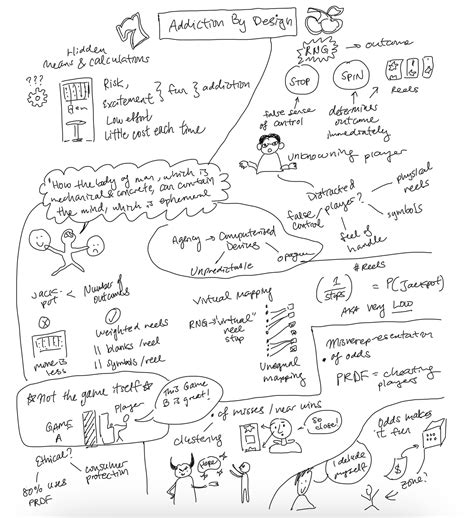 Addiction By Design
7
Hidden
means & calculations
???
Risk,
Excitement
Low effort
Little cost each time
} fun } addiction
RNG → outcome
STOP
SPIN
Reels
false sense
of control
determines
outcome
immediately
Unknowning player
"How the body of man, which is
mechanical & concrete, can contain
the mind, which is ephemeral
Distracted
player?
false
control
physical
reels
symbols
feel of
handle
Agency → Computerized
Devices
Unpredictable
opaque
JACK-
POT
<
Number of
outcomes
more is
less
weighted reels
" blanks/reel
" symbols/reel
Virtual Mapping
RNG → "virtual"
reel
stop
Unequal
mapping
(1/stops) # Reels = P(Jackpot)
AKA very LOW
Misrepresentation
of odds
PRDF = cheating
players
☆ Not the game itself ☆
GAME
A
Player
This Game
B is great!
Ethical?
consumer
protection
80% uses
PRDF
clustering
of misses / near wins
So
close!
Hope
I delude
myself
Odds makes
it fun
$
Zone?